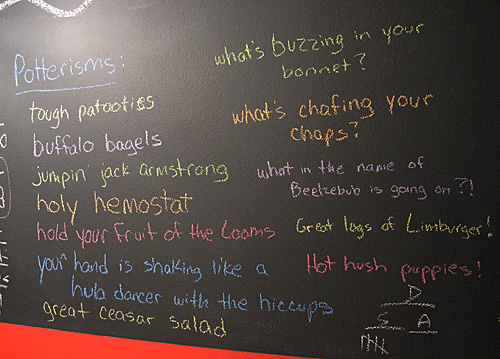 Potterisms:
tough patooties
buffalo bagels
jumpin' jack armstrong
holy hemostat
hold your Fruit of the Looms
your hand is shaking like a
hula dancer with the hiccups
great ceasar salad
what's buzzing in your
bonnet?
what's chafing your
chaps?
what in the name of
Beelzebub is going on?!
Great logs of Limburger!
Hot hush puppies!
D
S A